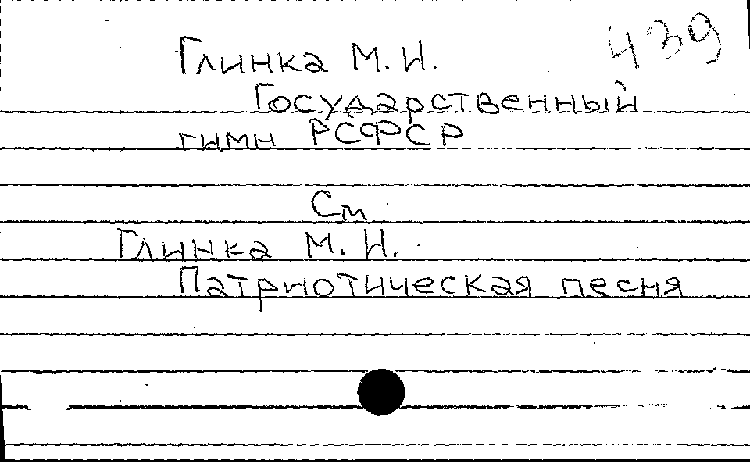 439
Глинка М.И.
Государственный
гимн РСФСР
См
Глинка М.И.
Патриотическая песня